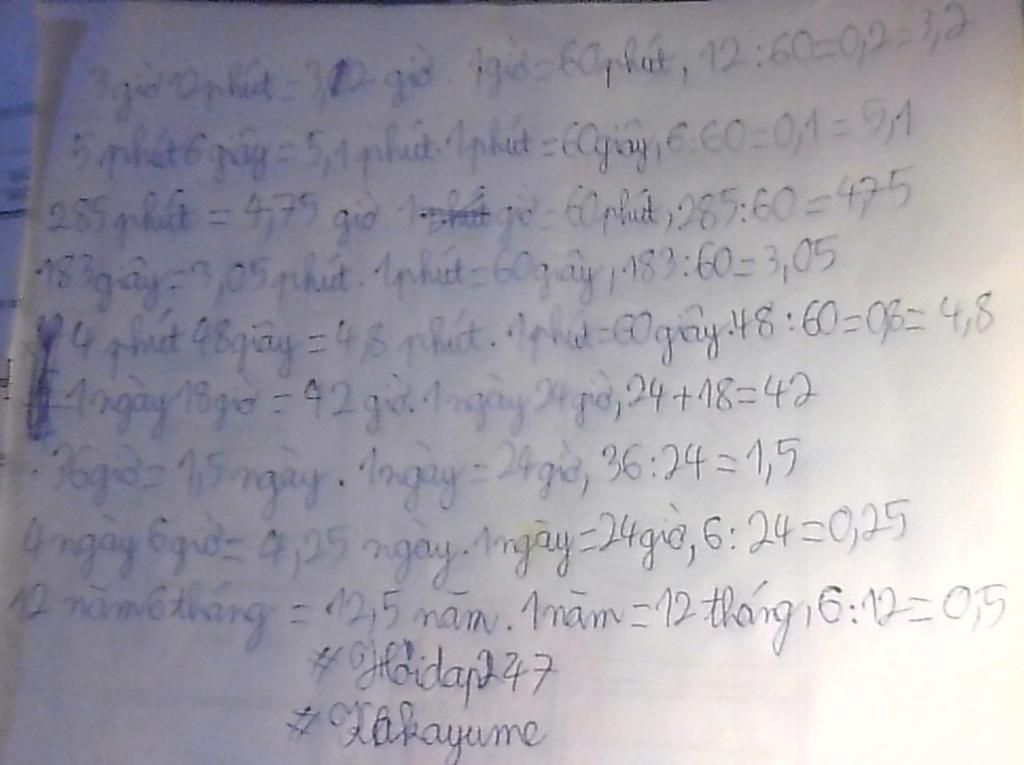 3 giờ 12 phút = 3,2 giờ. 1 giờ = 60 phút, 12 : 60 = 0,2 = 3,2
5 phút 6 giây = 5,1 phút. 1 phút = 60 giây, 6 : 60 = 0,1 = 5,1
285 phút = 4,75 giờ 1 giờ = 60 phút, 285 : 60 = 475
183 giây = 3,05 phút. 1 phút = 60 giây, 183 : 60 = 3,05
4 phút 48 giây = 4,8 phút. 1 phút = 60 giây. 48 : 60 = 0,8 = 4,8
1 ngày 18 giờ = 42 giờ. 1 ngày 24 giờ, 24 + 18 = 42
36 giờ = 1,5 ngày. 1 ngày = 24 giờ, 36 : 24 = 1,5
4 ngày 6 giờ = 4,25 ngày. 1 ngày = 24 giờ, 6 : 24 = 0,25
12 năm 6 tháng = 12,5 năm. 1 năm = 12 tháng, 6 : 12 = 0,5
#Hoidap247